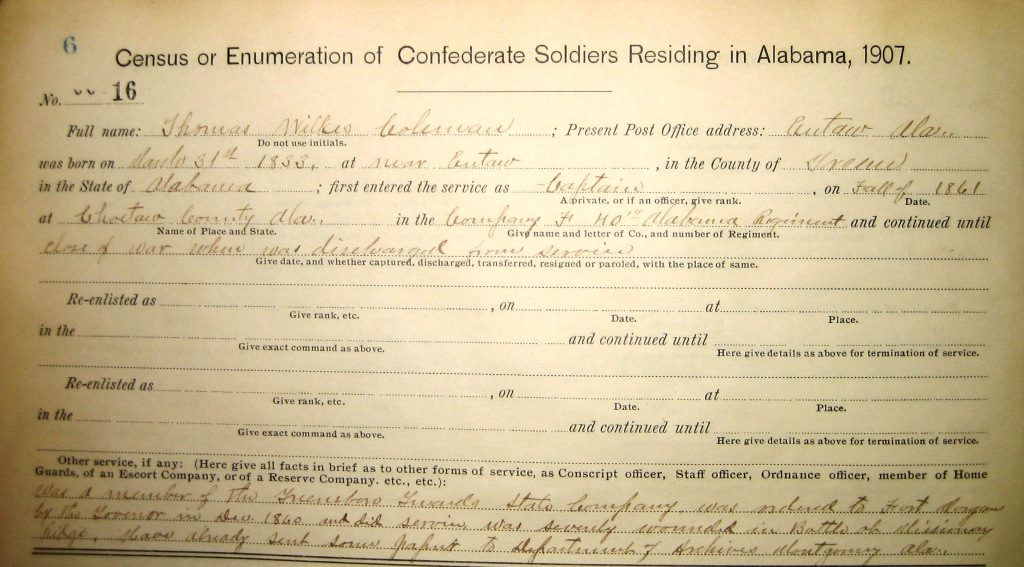 6
Census or Enumeration of Confederate Soldiers Residing in Alabama, 1907.
No. 16
Full name: Thomas Wilkes Coleman ; Present Post Office address: Eutaw Ala.
Do not use initials.
was born on March 31st 1833, at near Eutaw , in the County of Greene
in the State of Alabama ; first entered the service as Captain , on Fall of 1861
A private, or if an officer, give rank. Date.
at Choctaw County Ala. in the Company F 40th Alabama Regiment and continued until
Name of Place and State. Give name and letter of Co., and number of Regiment.
close of war when was discharged from service
Give date, and whether captured, discharged, transferred, resigned or paroled, with the place of same.
Re-enlisted as , on at
Give rank, etc. Date. Place.
in the and continued until
Give exact command as above. Here give details as above for termination of service.
Re-enlisted as , on at
Give rank, etc. Date. Place.
in the and continued until
Give exact command as above. Here give details as above for termination of service.
Other service, if any: (Here give all facts in brief as to other forms of service, as Conscript officer, Staff officer, Ordnance officer, member of Home
Guards, of an Escort Company, or of a Reserve Company. etc., etc.):
Was a member of the Greensboro Guards State Company was ordered to Fort Morgan
by the Governor in Dec. 1860 and did service was severely wounded in Battle of Missionary
Ridge, Have already sent some papers to Department of Archives Montgomery Ala.